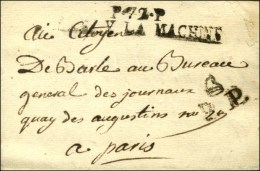 P.72.P
LA MACHINE
Au Citoyen
De Barle au Bureau
general des journaux
quay des augustins n° 29
P.
a paris